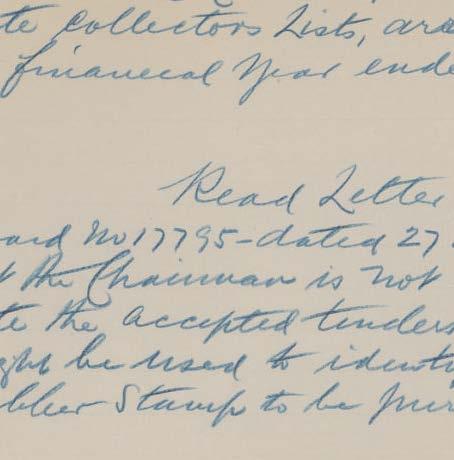 te collectors Lists, are
financial Year ende
Read Letter
oard No 17795 - dated 27
t the Chairman is not
te the accepted tenders
ght be used to identi
bber Stamp to be pur